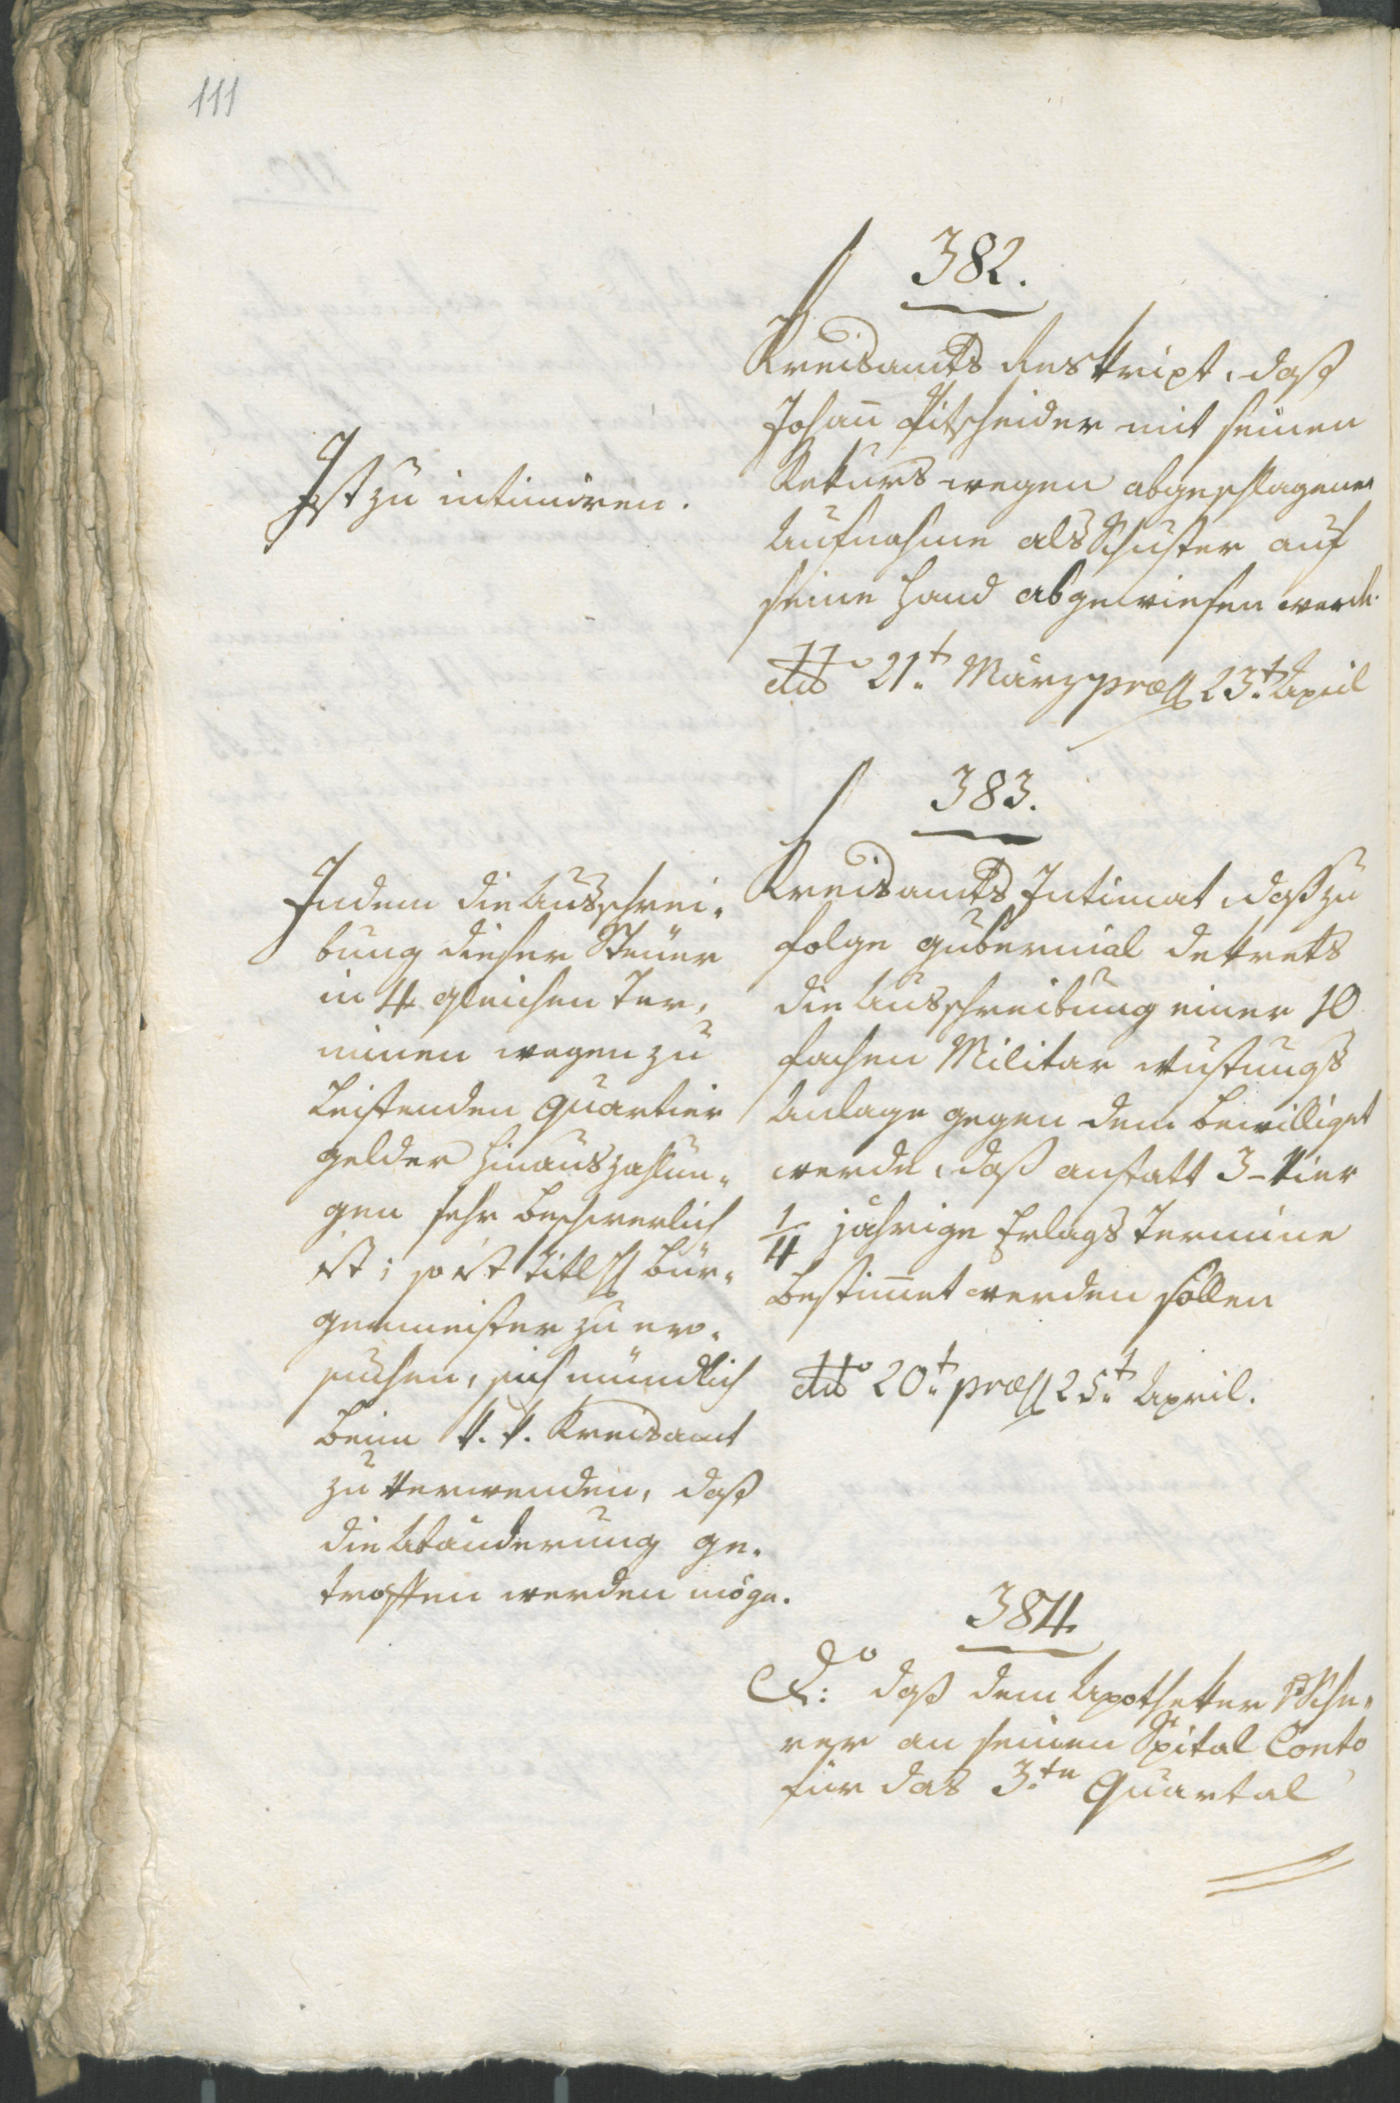 111
382.
Kreisamts Reskript, daß
Johann Pitscheider mit seinem
Rekurs wegen abgeschlagener
Aufnahme als Schuster auf
seine Hand abgewiesen werde.
ddo 21t. März præs 23t. April
Ist zu intimiren.
383.
Kreisamts Intimat, daß zu
folge gubernial dekrets
die Ausschreibung einer 10
fachen Militar rüstungs
Anlage gegen dem bewilliget
werde, daß anstatt 3 - vier
1/4 jährige Erlags Termine
bestimmet werden sollen
ddo 20t. præs 25t. April.
Indem die Ausschrei-
bung dieser Steuer
in 4 gleichen Ter-
minen wegen zu
leistenden Quartier
gelder hinauszahlun-
gen sehr beschwerlich
ist; so ist titl H Bür-
germeister zu er-
suchen, sich mündlich
beim k. k. Kreisamt
zu verwenden, daß
die Abänderung ge-
troffen werden möge.
384.
do: daß dem Apotheker
rer an seinen Spital Conto
für das 3.te Quartal